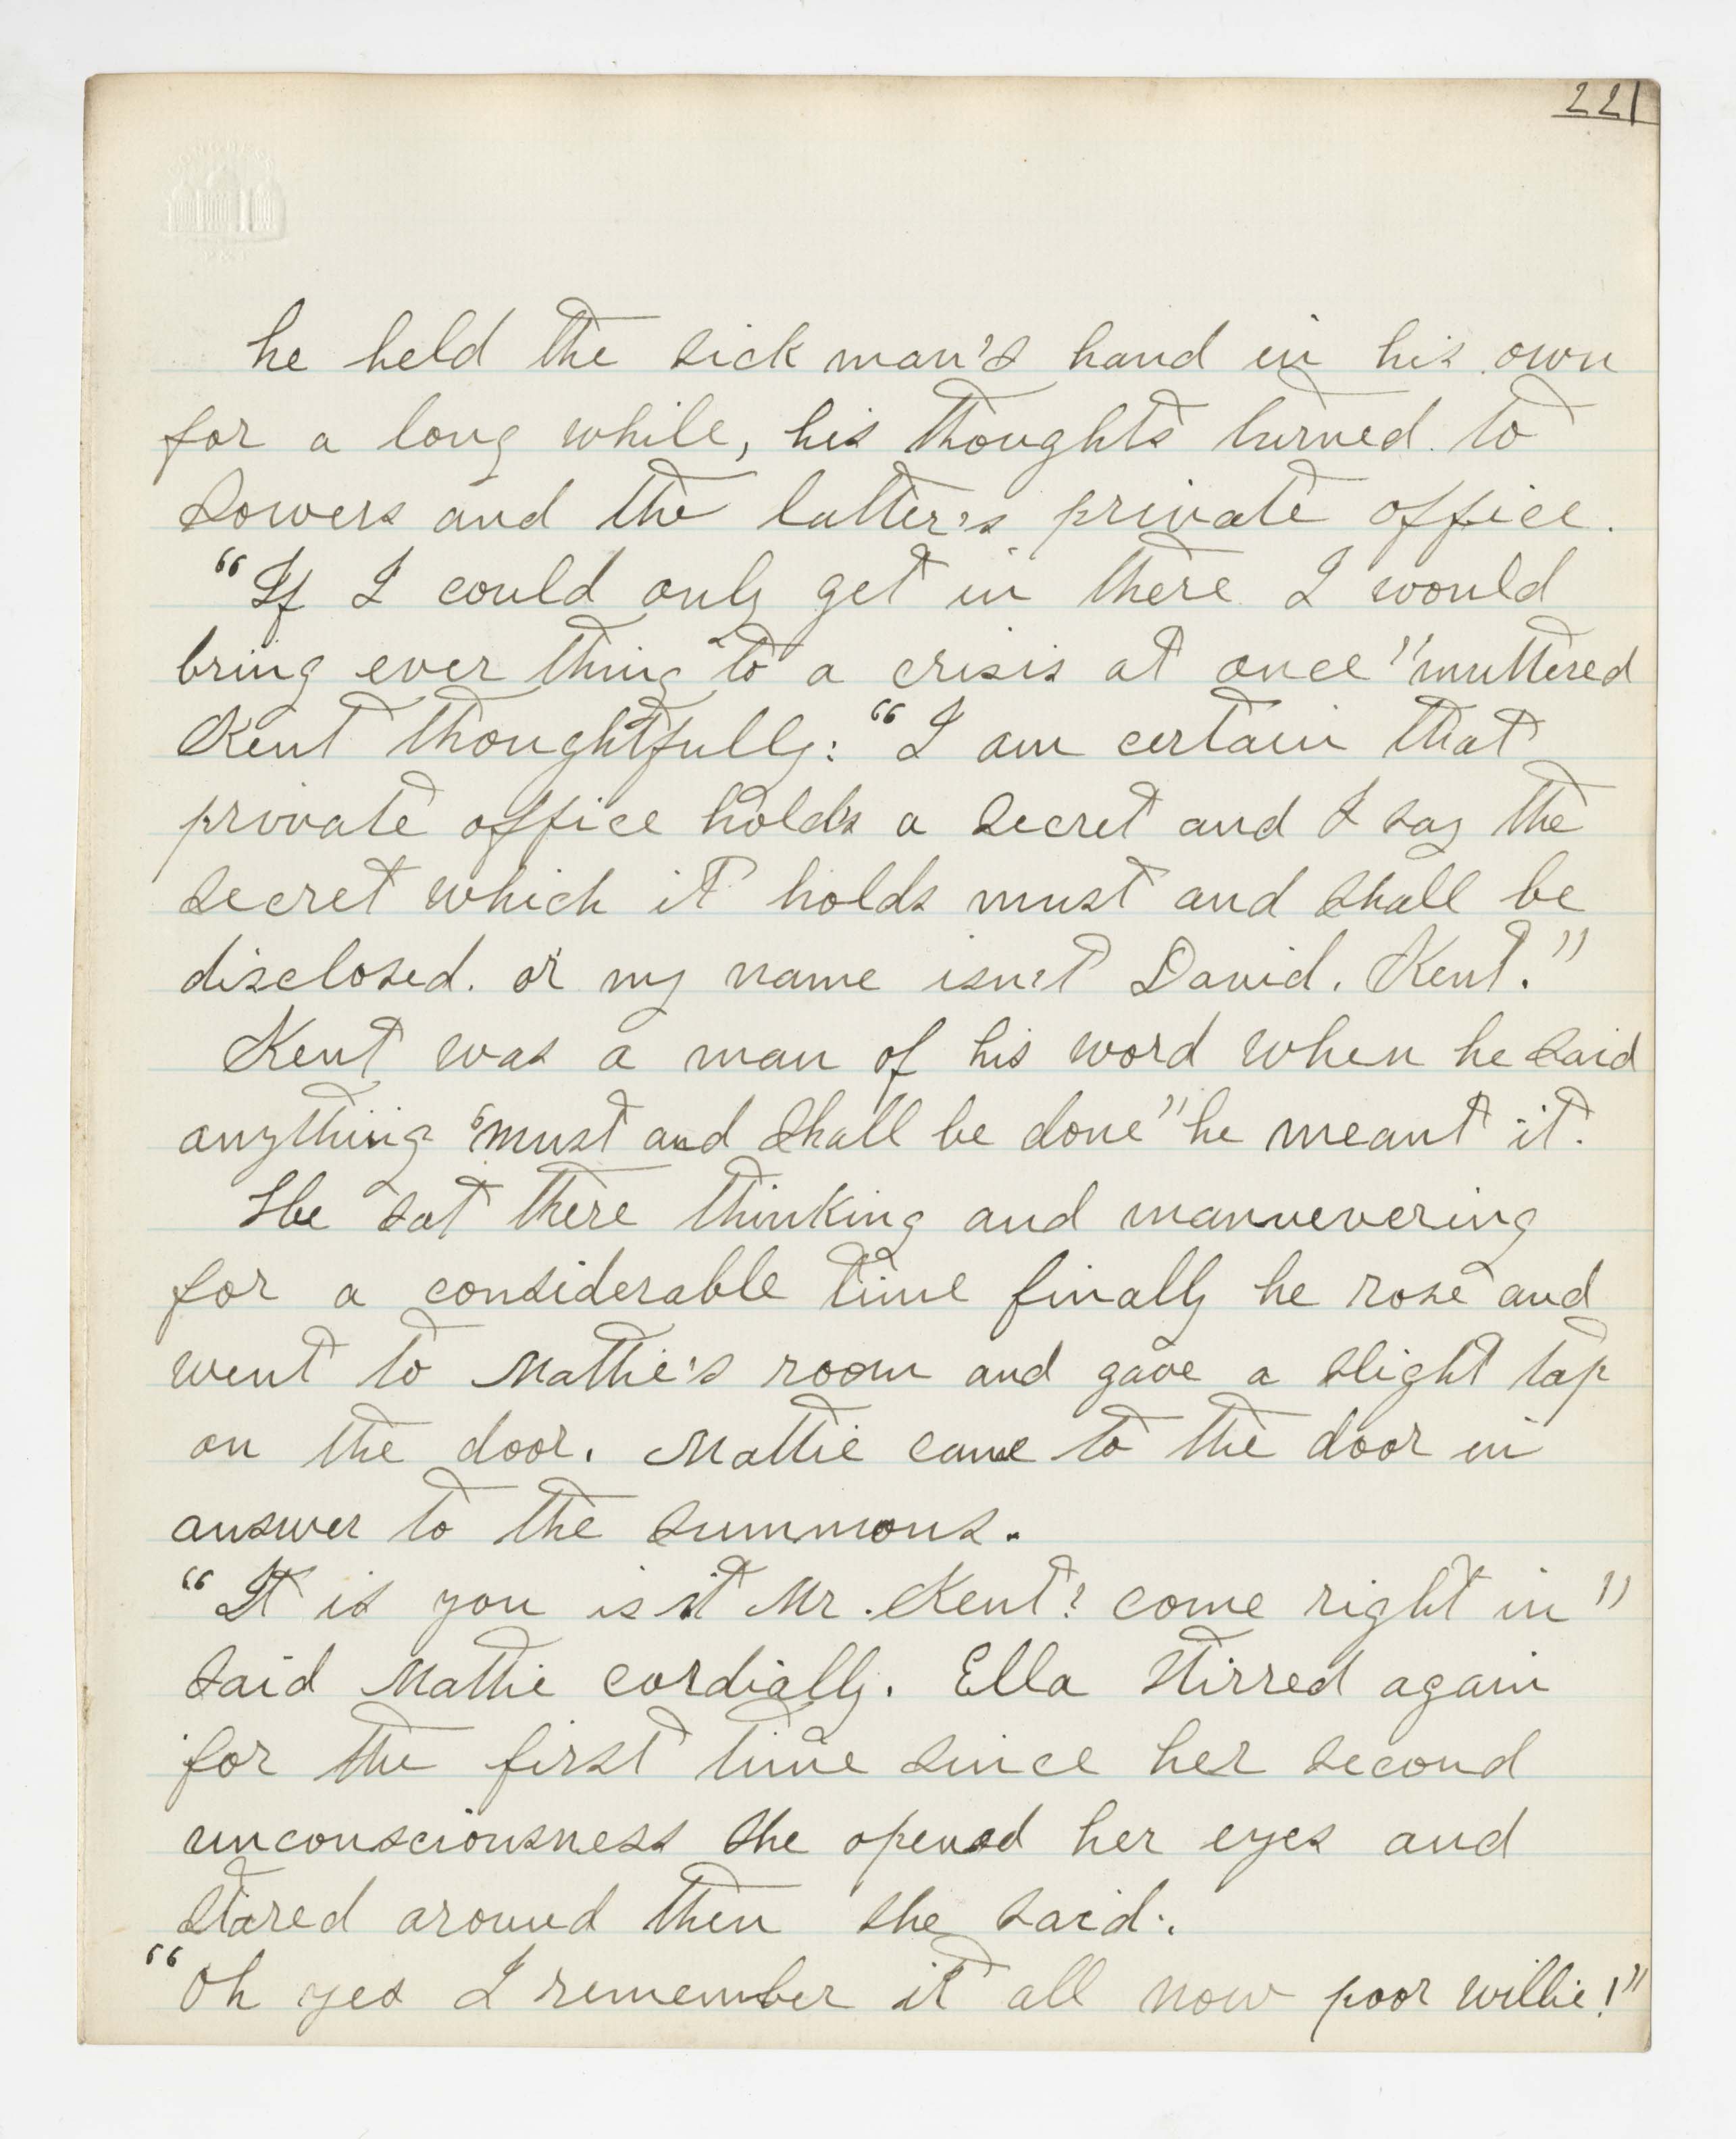 221
he held the sick man's hand in his own
for a long while, his thoughts turned to
Sowers and the latter's private office.
"If I could only get in there I would
bring ever thing to a crisis at once" muttered
Kent thoughtfully: "I am certain that
private office holds a secret and I say the
secret which it holds must and shall be
disclosed. or my name isn't David. Kent."
Kent was a man of his word when he said
anything "must and shall be done" he meant it.
He sat there thinking and mannevering
for a considerable time finally he rose and
went to Mattie's room and gave a slight tap
on the door. Mattie came to the door in
answer to the summons.
"It is you is it Mr. Kent? come right in"
said Mattie cordially. Ella stirred again
for the first time since her second
unconsciousness she opened her eyes and
stared around then she said:
"Oh yes I remember it all now poor willie!"